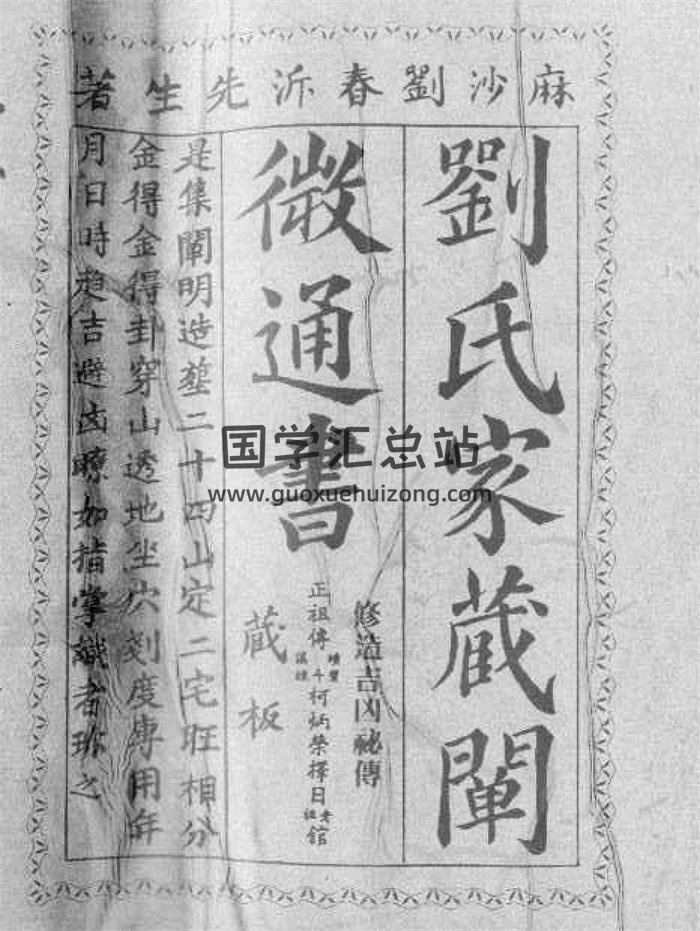 麻沙劉春沂先生著
劉氏家藏闡
微通書
修造吉凶祕傳
正祖傳 柯炳榮擇日 館
藏板
是集闡明造塟二十四山定二宅旺相分
金得金得卦穿山透地坐穴刻度專用年
月日時趨吉避凶暸如指掌識者珍之
国学汇总站
www.guoxuehuizong.com